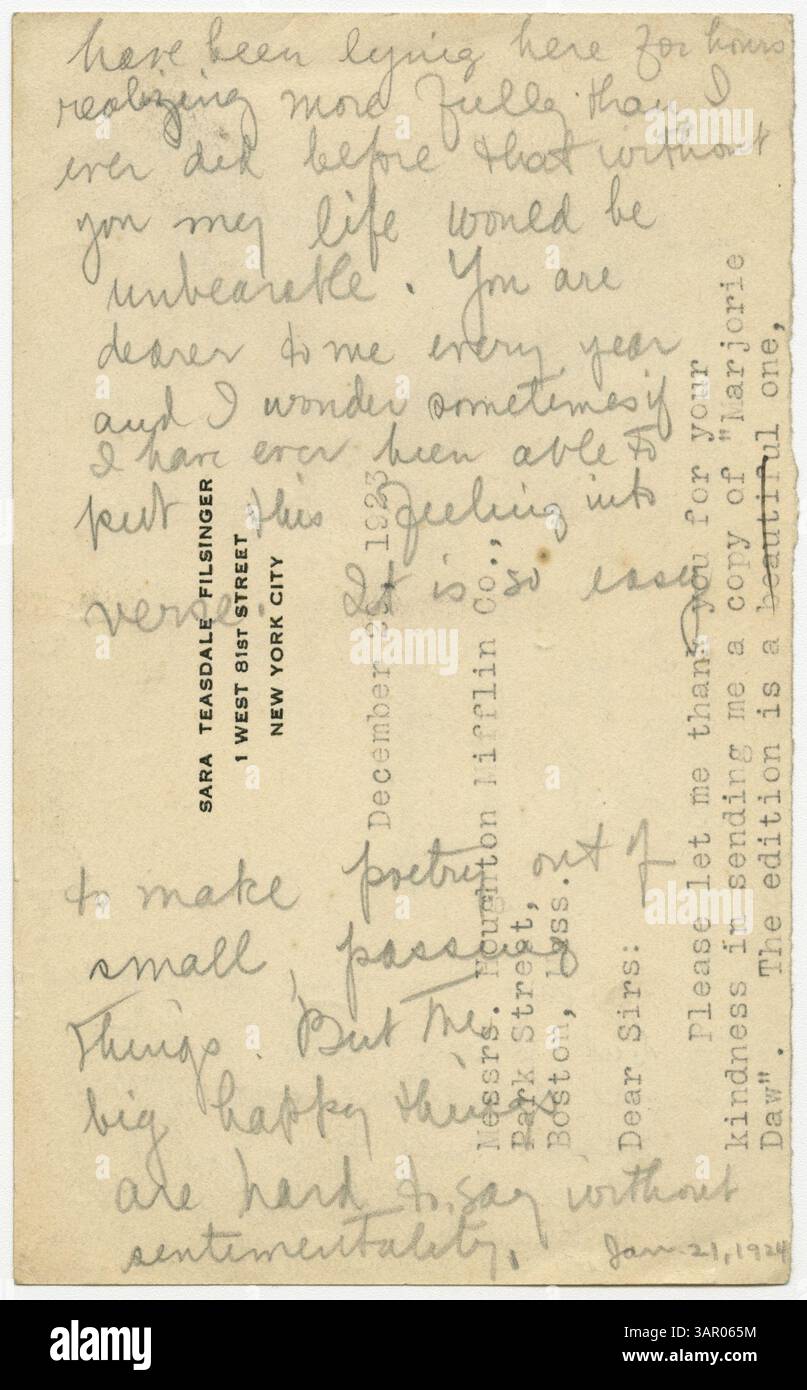 have been lying here for hours
realizing more fully than I
ever did before that without
you my life would be
unbearable. You are
dearer to me every year
and I wonder sometimes if
I have ever been able to
put this feeling into
verse. It is so easy
to make poetry out of
small, passing
things. But the
big happy things
are hard to say without
sentimentality.
Jan. 21, 1924
SARA TEASDALE FILSINGER
1 WEST 81ST STREET
NEW YORK CITY
December 1923
Messrs. Houghton Mifflin Co.,
Park Street,
Boston, Mass.
Dear Sirs:
Please let me thank you for your
kindness in sending me a copy of "Marjorie
Daw". The edition is a beautiful one,
alamy
Image ID: 3AR065M
www.alamy.com